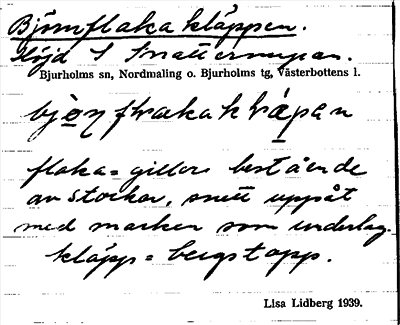 Björnflakakläppen.
Höjd S Snattermyran.
Bjurholms sn, Nordmaling o. Bjurholms tg, Västerbottens l.
flaka = giller bestående
av stockar, snett uppåt
med marken som underlag.
kläpp = bergstopp.
Lisa Lidberg 1939.